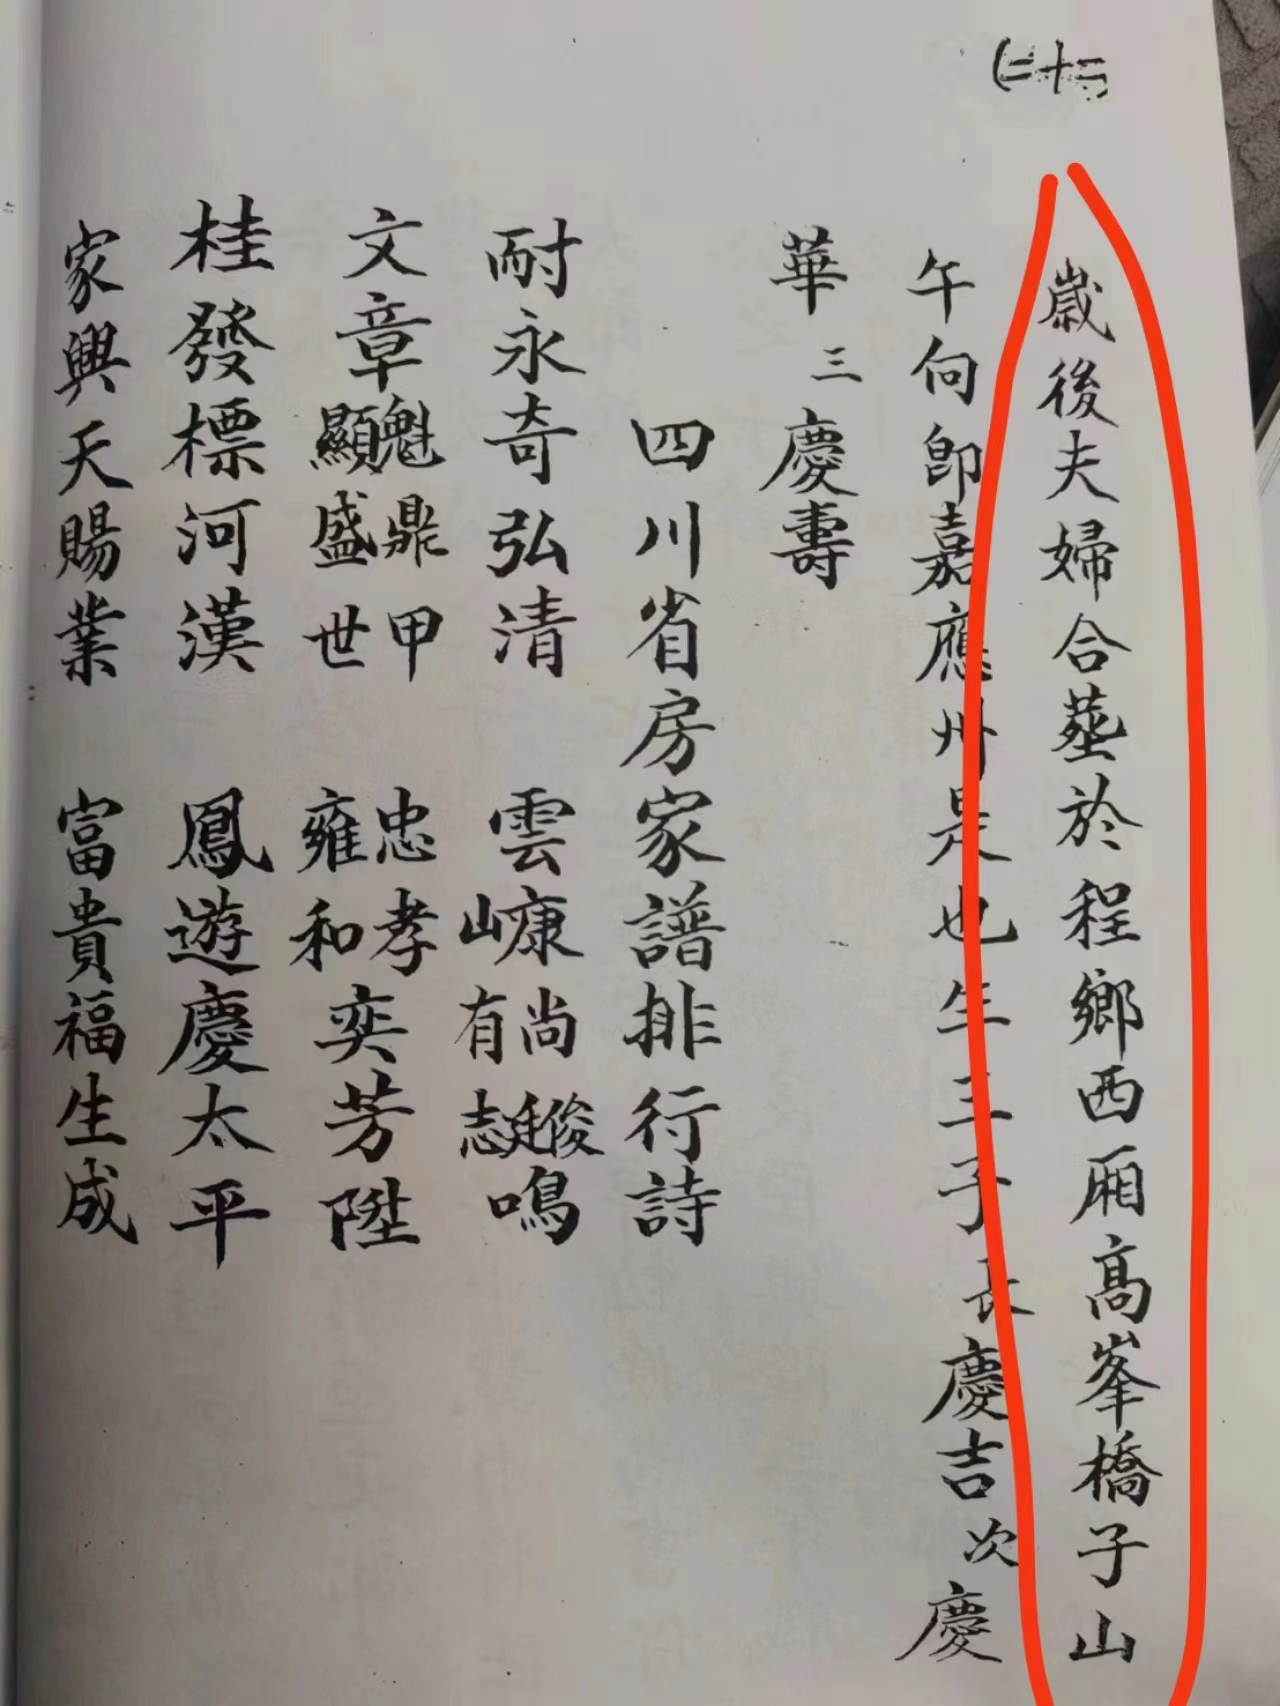 (二十二
歲後夫婦合塟於程鄉西厢高峯橋子山
午向卽嘉應州是也生三子長慶吉次慶
華三慶壽
四川省房家譜排行詩
耐永奇弘清 雲㠠有尚志廷俊鳴
文章顯魁盛鼎世甲 雍忠和孝奕芳陞
桂發標河漢 鳳遊慶太平
家興天賜業 富貴福生成